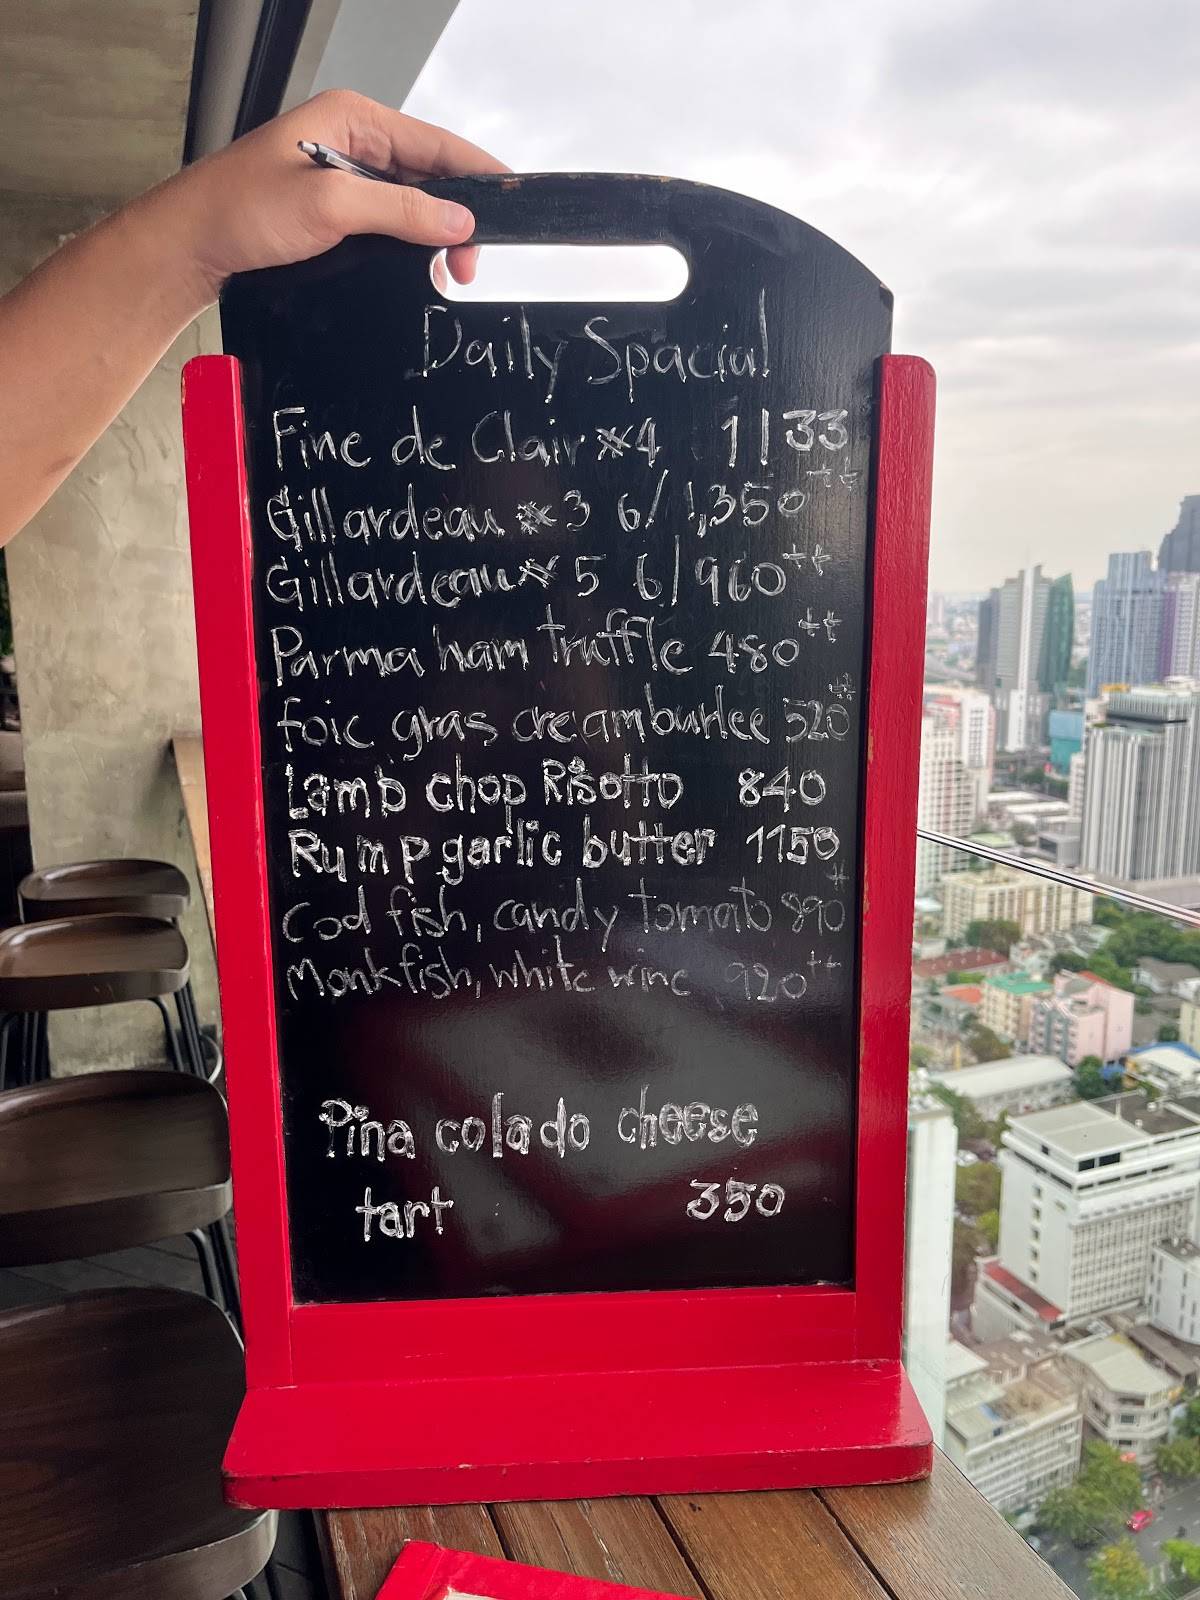 Daily Spacial
Fine de Clair #4 1133
Gillardeau #3 6/1,350++
Gillardeau #5 6/960++
Parma ham truffle 480++
foic gras creamburlee 520++
Lamb chop Risotto 840
Rump garlic butter 1150
Cod fish, candy tomato 890++
Monkfish, white wine 920++
Pina colado cheese
tart 350